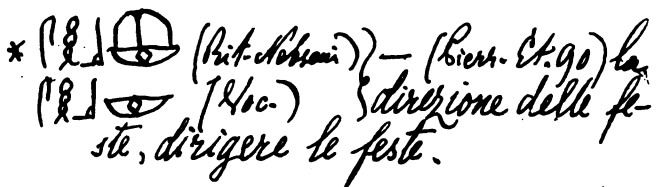 * (Rit. Nebseni) } — (Pierr. Ét. 90) la
(Voc.) } direzione delle fe-
ste, dirigere le feste.